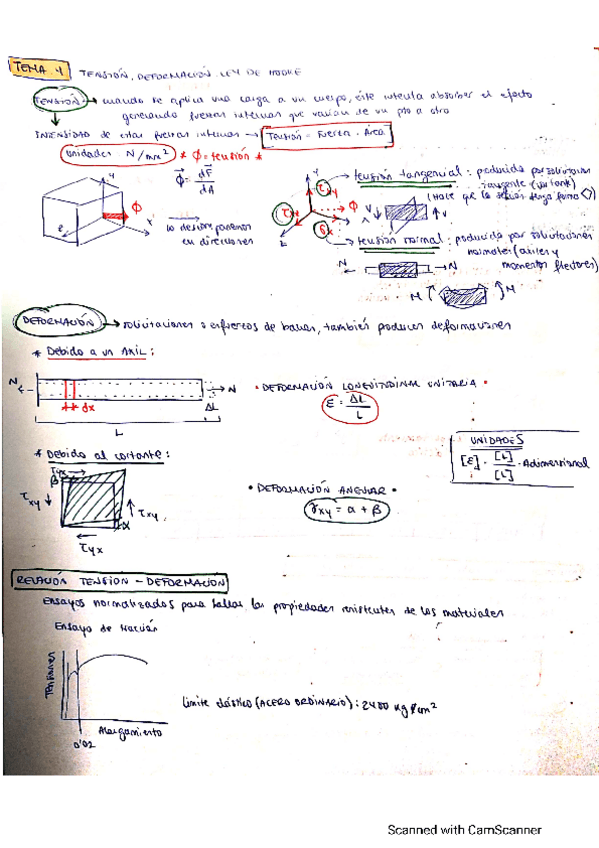 TEMA 4 TENSIÓN, DEFORMACIÓN. LEY DE HOOKE
TENSIÓN → cuando se aplica una carga a un cuerpo, éste intenta absorber el efecto
generando fuerzas internas que varían de un pto a otro
INTENSIDAD de estas fuerzas internas → Tensión = Fuerza · Área
Unidades N/mm² * ϕ = tensión *
ϕ = dF/dA
Y
X
Z
ϕ
lo descomponemos
en direcciones
τxy
ϕ
σx
→ tensión tangencial: producida por solicitaciones
tangente (cortante)
(Hace que la sección tenga forma ◊)
V
V
→ tensión normal: producida por solicitaciones
normales (axiles y
momentos flectores)
N ← → N
M M
DEFORMACIÓN → solicitaciones o esfuerzos de barras, también producen deformaciones
* Debido a un AXIL:
N ← → N
dx
ΔL
L
• DEFORMACIÓN LONGITUDINAL UNITARIA •
ε = ΔL/L
UNIDADES
[ε] · [L]/[L] · Adimensional
* Debido al cortante:
τyx
β
τxy ↓ ↑ τxy
α
τyx
• DEFORMACIÓN ANGULAR •
γxy = α + β
RELACIÓN TENSIÓN - DEFORMACIÓN
Ensayos normalizados para hallar las propiedades resistentes de los materiales
Ensayo de tracción
Tensiones
Alargamiento
0'02
Límite elástico (ACERO ORDINARIO): 2400 kg/cm²
Scanned with CamScanner